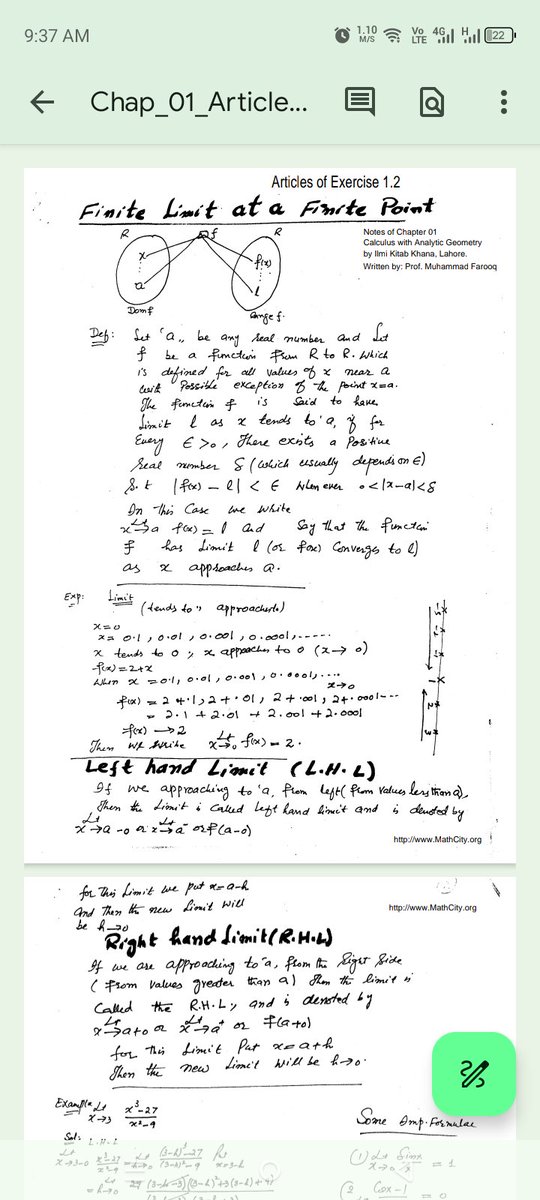 9:37 AM
1.10 M/S Vo LTE 4G H 22
Chap_01_Article...
Articles of Exercise 1.2
Finite Limit at a Finite Point
R f R
Notes of Chapter 01
Calculus with Analytic Geometry
by Ilmi Kitab Khana, Lahore.
Written by: Prof. Muhammad Farooq
x f(x)
a l
Dom f Range f.
Def: Let 'a,, be any real number and Let
f be a function from R to R. which
is defined for all values of x near a
with Possible exception of the point x=a.
The function f is Said to have
Limit l as x tends to 'a, if for
Every ∈>0, There exists a Positive
real number δ (which usually depends on ∈)
S.t |f(x) - l| < ∈ when ever 0<|x-a|<δ
In This Case we write
Lt x→a f(x) = l and Say that the function
f has Limit l (or f(x) Converges to l)
as x approaches a.
Exp: Limit
(tends to,, approaches to)
x=0
x= 0.1, 0.01, 0.001, 0.0001,-----
x tends to 0, x approaches to 0 (x→0)
f(x) = 2+x
when x = 0.1, 0.01, 0.001, 0.0001,...
x→0
f(x) = 2+.1, 2+.01, 2+.001, 2+.0001---
= 2.1 + 2.01 + 2.001 + 2.0001
f(x) → 2
Then we write Lt x→0 f(x) = 2.
-3 -2 -1 1 2 3
Left hand Limit (L.H.L)
If we approaching to 'a, from left (from values less than a),
Then the Limit is Called left hand limit and is denoted by
Lt x→a-0 or Lt x→a⁻ or f(a-0)
http://www.MathCity.org
for This Limit we put x=a-h
and Then the new Limit will
be h→0
http://www.MathCity.org
Right hand Limit (R.H.L)
If we are approaching to 'a, from the Right Side
(from values greater than a) Then the limit is
Called the R.H.L, and is denoted by
Lt x→a+0 or Lt x→a⁺ or f(a+0)
for This Limit Put x=a+h
Then the new Limit will be h→0.
Example Lt x→3 x³-27
x²-9
Some Imp. Formulae
Sol: L.H.L
Lt x→3-0 x³-27/x²-9 = Lt h→0 (3-h)³-27/(3-h)²-9 Put x=3-h
(1) Lt x→0 Sinx/x = 1